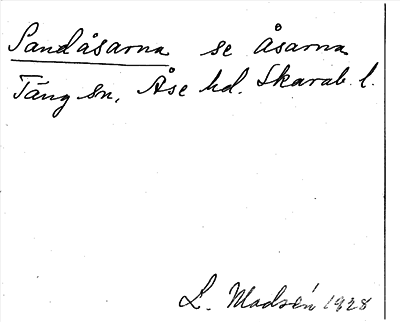 Sandåsarna se Åsarna
Täng sn, Åse hd. Skarab. l.
L. Modsén 1928